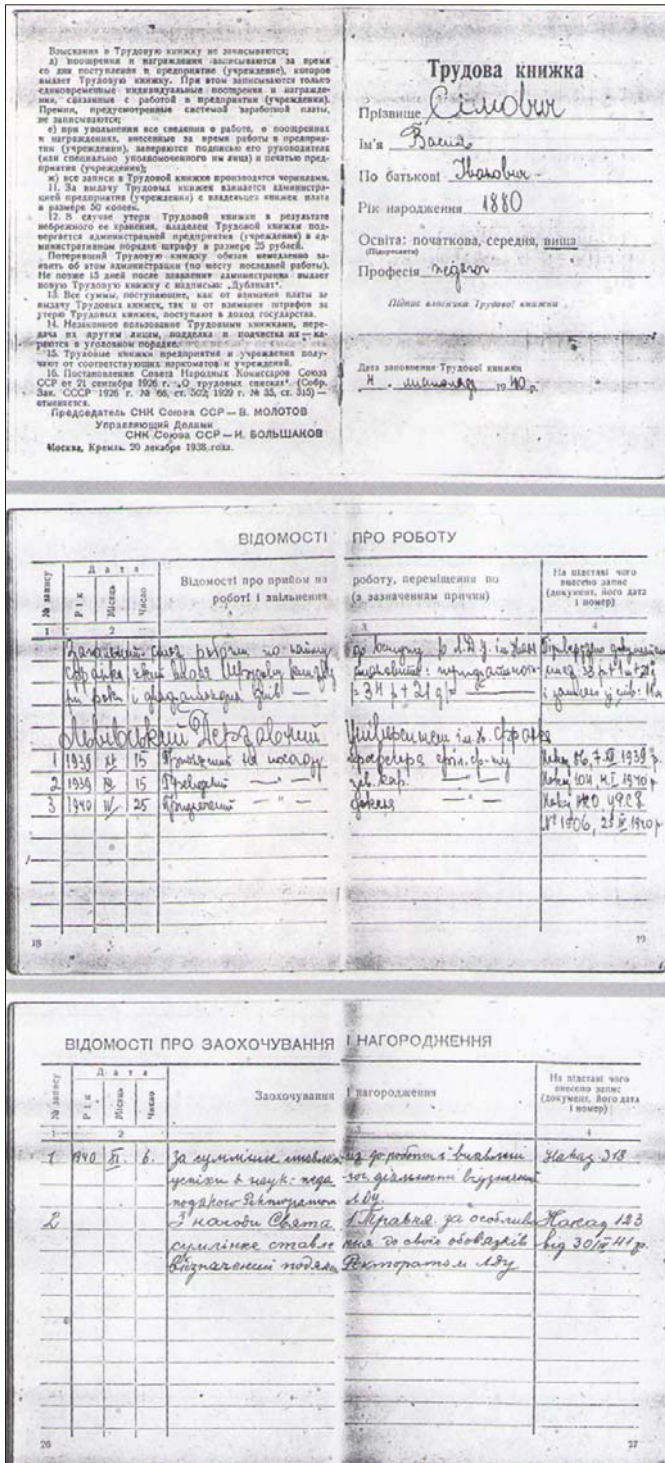 Взыскания в Трудовую книжку не записываются;
д) поощрения и награждения записываются за время
со дня поступления в предприятие (учреждение), которое
выдает Трудовую книжку. При этом записываются только
единовременные индивидуальные поощрения и награжде-
ния, связанные с работой в предприятии (учреждении).
Премии, предусмотренные системой заработной платы,
не записываются;
е) при увольнении все сведения о работе, о поощрениях
и награждениях, внесенные за время работы в предприя-
тии (учреждении), заверяются подписью его руководителя
(или специально уполномоченного им лица) и печатью пред-
приятия (учреждения);
ж) все записи в Трудовой книжке производятся чернилами.
11. За выдачу Трудовых книжек взимается администра-
цией предприятия (учреждения) с владельцев книжек плата
в размере 50 копеек.
12. В случае утери Трудовой книжки в результате
небрежного ее хранения, владелец Трудовой книжки под-
вергается администрацией предприятия (учреждения) в ад-
министративном порядке штрафу в размере 25 рублей.
Потерявший Трудовую книжку обязан немедленно за-
явить об этом администрации (по месту последней работы).
Не позже 15 дней после заявления администрация выдает
новую Трудовую книжку с надписью: „Дубликат“.
13. Все суммы, поступающие, как от взимания платы за
выдачу Трудовых книжек, так и от взимания штрафов за
утерю Трудовых книжек, поступают в доход государства.
14. Незаконное пользование Трудовыми книжками, пере-
дача их другим лицам, подделка и подчистка их — ка-
раются в уголовном порядке.
15. Трудовые книжки предприятия и учреждения полу-
чают от соответствующих наркоматов и учреждений.
16. Постановление Совета Народных Комиссаров Союза
ССР от 21 сентября 1926 г. „О трудовых списках“ (Собр.
Зак. СССР 1926 г. № 66, ст. 502; 1929 г. № 35, ст. 315) —
отменяется.
Председатель СНК Союза ССР — В. МОЛОТОВ
Управляющий Делами
СНК Союза ССР — И. БОЛЬШАКОВ
Москва, Кремль. 20 декабря 1938 года.
Трудова книжка
Прізвище Сімович
Ім'я Василь
По батькові Іванович
Рік народження 1880
Освіта: початкова, середня, вища
(Підкреслити)
Професія педагог
Підпис власника Трудової книжки
Дата заповнення Трудової книжки
4. листопада 1940 р.
ВІДОМОСТІ ПРО РОБОТУ
№ запису
Дата
Рік Місяць Число
Відомості про прийом на роботу, переміщення по
роботі і звільнення (з зазначенням причин)
На підставі чого
внесено запис
(документ, його дата
і номер)
1 2 3 4
Загальний стаж роботи по найму
Львівський Державний Університет ім. Ів. Франка
1 1939 XI 15 Призначений на посаду професора
2 1939 15 зав. каф.
3 1940 IV 25 Призначений декана
18 19
ВІДОМОСТІ ПРО ЗАОХОЧУВАННЯ І НАГОРОДЖЕННЯ
№ запису
Дата
Рік Місяць Число
Заохочування і нагородження
На підставі чого
внесено запис
(документ, його дата
і номер)
1 2 3 4
1 1940 XI 6. За сумлінне до роботи і виявлені Наказ 318
успіхи в наук.
подякою Ректоратом ЛДУ.
2 З нагоди Свята 1 Травня за особливе Наказ 123
сумлінне ставлення до своїх обов'язків від 30/IV 41 р.
Відзначений подякою Ректоратом ЛДУ
26 27